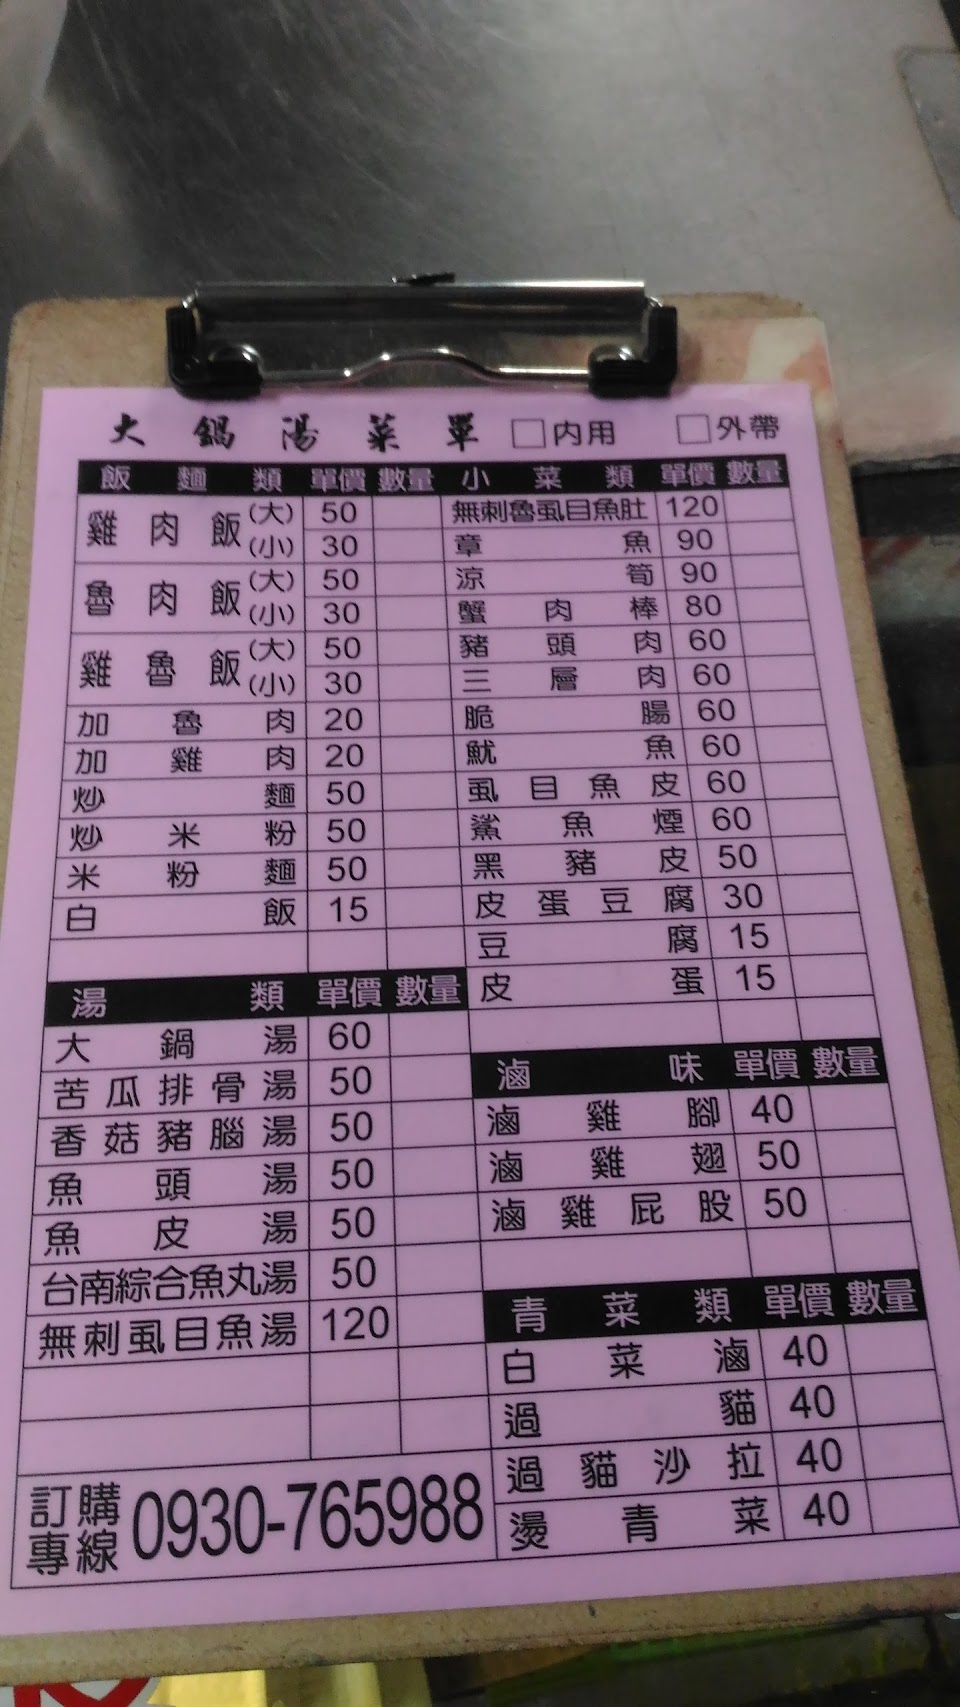 大鍋湯菜單 □內用 □外帶
飯麵類 單價 數量
雞肉飯 (大) 50
(小) 30
魯肉飯 (大) 50
(小) 30
雞魯飯 (大) 50
(小) 30
加魯肉 20
加雞肉 20
炒麵 50
炒米粉 50
米粉麵 50
白飯 15
湯類 單價 數量
大鍋湯 60
苦瓜排骨湯 50
香菇豬腦湯 50
魚頭湯 50
魚皮湯 50
台南綜合魚丸湯 50
無刺虱目魚湯 120
訂購專線 0930-765988
小菜類 單價 數量
無刺魯虱目魚肚 120
章魚 90
涼筍 90
蟹肉棒 80
豬頭肉 60
三層肉 60
脆腸 60
魷魚 60
虱目魚皮 60
鯊魚煙 60
黑豬皮 50
皮蛋豆腐 30
豆腐 15
皮蛋 15
滷味 單價 數量
滷雞腳 40
滷雞翅 50
滷雞屁股 50
青菜類 單價 數量
白菜滷 40
過貓 40
過貓沙拉 40
燙青菜 40